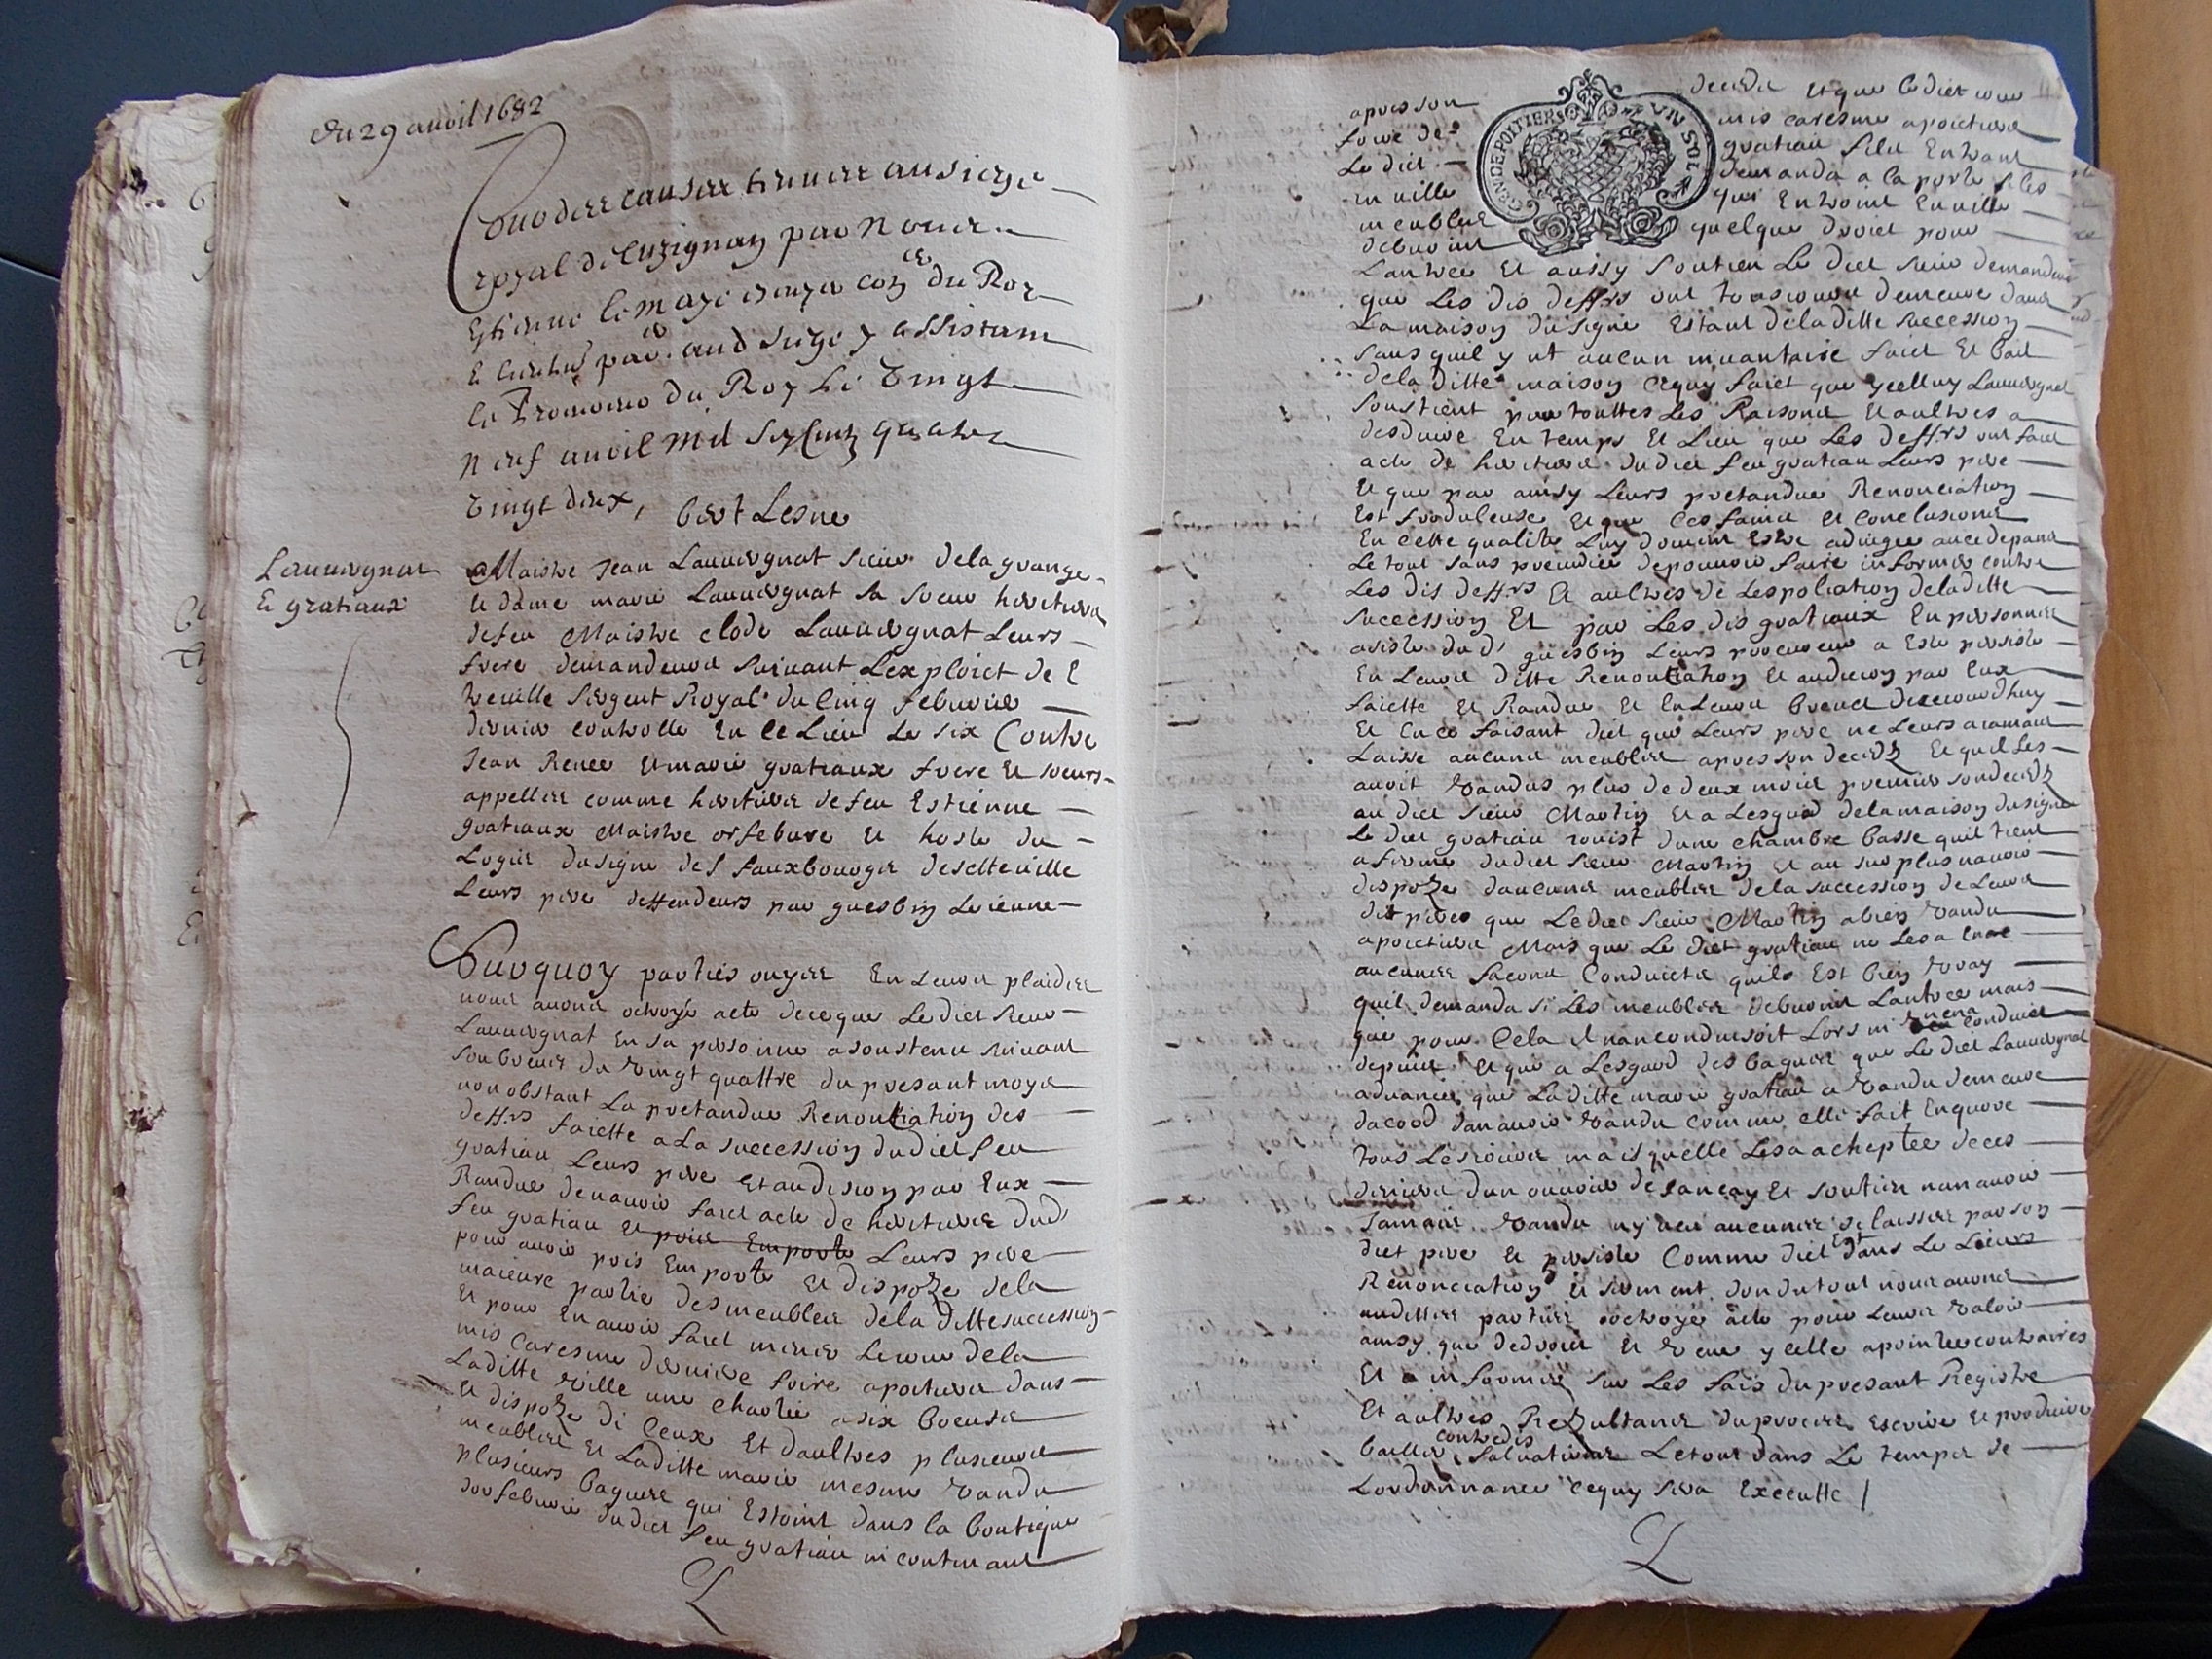 du 29 auvil 1682
Duo des causes tenues au siege
royal de Luzignan par Nous
Estienne le
du Roy
par aud siege y assistam
le du Roy le Vingt
neuf avvil mil six Cents quatre
Vingt deux, Lesne
Lauuergnat
Et gratiaux
Maistre Jean Lauuergnat sieur dela grange
Et dame marie Lauuergnat sa soeur heritiers
defeu Maistre clode Lauuergnat Leurs
frere demandeurs suiuant Lexploict de
treuille sergent Royal du Cinq februier
dernier controlle En ce Lieu Le six Contre
Jean Renee Et marie gratiaux frere Et soeurs
appelles comme heritiers defeu Estienne
gratiaux Maistre orfebure Et hoste du
Logis du signe des fauxbourgs desette uille
Leurs pere deffendeurs par guesbin
Surquoy parties ouyes En Leurs plaides
nous auons octroyé acte deceque Le dict sieur
Lauuergnat En sa personne a soustenu suiuant
son breuet du Vingt quattre du presant moys
nonobstant La pretandue Renontiation des
deff.rs faiette a La succession dudict feu
gratiau Leurs pere Et audision par Eux
Randue denauoir faict acte de heritiers dud'
feu gratiau Et pour Emporte Leurs pere
pour auoir pris Emporte Et dispoze dela
maieure partie des meubles dela ditte succession
Et pour En auoir faict mener Le iour dela
mis Caresme derniere foire apoictiers dans
Laditte Ville une Charte a six boeufs
Et dispoze de Ceux Et daultres plusieurs
meubles Et Laditte marie mesme Vandu
plusieurs bagues qui Estoint dans la boutique
dorfebure dudict feu gratiau incontinant
apres son deceds Et que le dict iour
foire de mis caresme apoictiers
Le dict gratiau fils Entrant
en uille demanda a la porte si les
meubles qui Entroint En uille
debuoint quelque droict pour
Lantree Et aussy soutien Le dict sieur demandeur
que Les dis deff.rs ont tousiours demeure dans
La maison du signe Estant dela ditte succession
sans quil y ut aucun inuantaire faict Et bail
dela ditte maison Cequy faict que ycelluy Lauuergnat
soustient par touttes Les Raisons Et aultres a
desduire En temps Et Lieu que Les deff.rs ont faict
acte de heritiers dudict feu gratiau Leurs pere
Et que par ainsy Leurs pretandue Renonciation
Est froduleuse Et que ces fains Et conclusions
En cette qualite Luy doiuent Estre adiugee auce depans
Le tout sans preiudice depouuoir faire informer contre
Les dis deff.rs Et aultres de Lespoliation dela ditte
succession Et par Les dis gratiaux En personnes
asiste dud' guesbin Leurs procureur a Este persiste
En Leurs ditte Renontiation Et audicion par Eux
faiette Et Randue Et En Leurs breuet deceiourdhuy
Et En ce faisant dict que Leurs pere ne Leurs a iamais
Laisse aucuns meubles apres son deceds Et quil Les
auoit Vandus plus de deux mois premier son deceds
au dict sieur Martin Et a Lesgard dela maison du signe
Le dict gratiau iouist dune chambre basse quil tient
a ferme dudict sieur Martin Et au surplus nauoir
dispoze daucuns meubles dela succession de Leurs
dit peres que Le dict sieur Martin a bien Vandu
apoictiers Mais que Le dict gratiau ne Les a
aucunes facons Conduicts quils Est bien Vray
quil demanda si Les meubles debuoint Lantree mais
que pour Cela il nanconduisoit Lors ni conduict
depuis Et que a Lesgard des bagues que Le dict Lauuergnat
aduance que La ditte marie gratiau a Vandu demeure
dacord danauoir Vandu comme elle fait Enquore
tous Les iours mais quelle Les a acheptee deces
deniers dun ouurier de Sancay Et soutien nan auoir
Jamais Vandu ny ueu aucunes delaisses par son
dict pere Et persiste Comme dict Est dans Le Lieurs
Renonciation Et serment dondutout nous auons
audittes parties octroyé acte pour Leurs Valoir
ainsy que dedroict Et Veu y celle apointes contraires
Et a informer sur Les fais du presant Registre
Et aultres Rezultans du proces Escrire Et produire
bailler contredis saluations Letour dans Le temps de
Lordonnance Cequy sera Executté
GEN DE POITIERS UN SOL